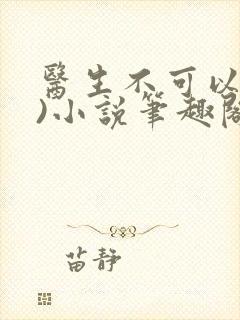 醫生不可以
)小說筆趣閣
苗靜